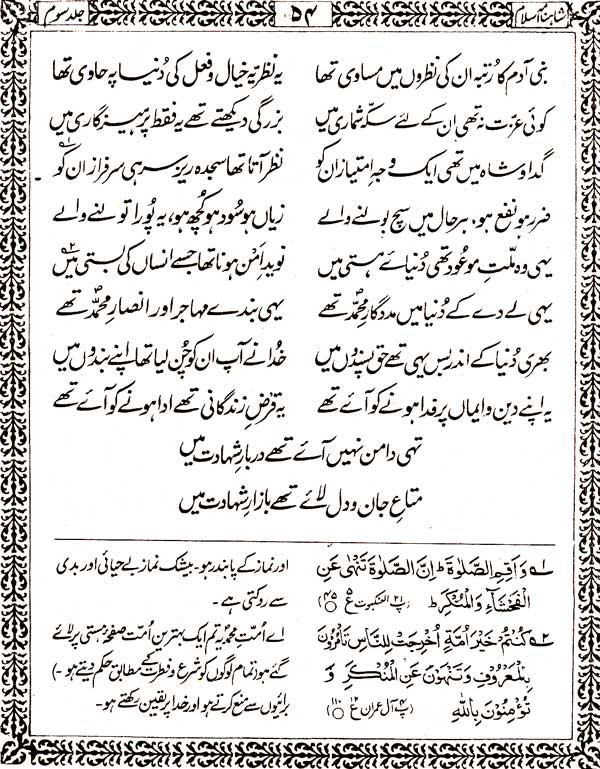 شاہنامۂ اسلام ۵۴ جلد سوم
بنی آدم کا رُتبہ ان کی نظروں میں مساوی تھا یہ نظریّہ خیال و فعل کی دُنیا پہ حاوی تھا
کوئی عزّت نہ تھی ان کے لئے سکّہ شماری میں بزرگی دیکھتے تھے یہ فقط پرہیزگاری میں
گدا و شاہ میں تھی ایک وجہِ امتیاز ان کو نظر آتا تھا سجدہ ریز سر ہی سرفراز ان کو ؎۱
ضرر ہو نفع ہو، ہر حال میں سچ بولنے والے زیاں ہو سُود ہو کُچھ ہو، یہ پُورا تولنے والے
یہی وہ ملّتِ موعُود تھی دُنیائے ہستی میں نویدِ امن ہونا تھا جسے انساں کی بستی میں ؎۲
یہی لے دے کے دُنیا میں مددگارِ محمدؐ تھے یہی بندے مہاجر اور انصارِ محمدؐ تھے
بھری دُنیا کے اندر بس یہی تھے حق پسندوں میں خُدا نے آپ ان کو چُن لیا تھا اپنے بندوں میں
یہ اپنے دین و ایماں پر فدا ہونے کو آئے تھے یہ قرضِ زندگانی تھے ادا ہونے کو آئے تھے
تہی دامن نہیں آئے تھے دربارِ شہادت میں
متاعِ جان و دل لائے تھے بازارِ شہادت میں
؎۱ وَاَقِمِ الصَّلٰوۃَ ط اِنَّ الصَّلٰوۃَ تَنْہٰی عَنِ اور نماز کے پابند رہو۔ بیشک نماز بے حیائی اور بدی
الْفَحْشَآءِ وَالْمُنْکَرِ ط (پ۲۱ العنکبوت ع ۵ ۴۵) سے روکتی ہے۔
؎۲ کُنْتُمْ خَیْرَ اُمَّۃٍ اُخْرِجَتْ لِلنَّاسِ تَاْمُرُوْنَ اے اُمّتِ محمدؐیہ تم ایک بہترین اُمّت صفحۂ ہستی پر لائے
بِالْمَعْرُوْفِ وَتَنْہَوْنَ عَنِ الْمُنْکَرِ وَ گئے ہو (تمام لوگوں کو شرع و فطرت کے مطابق حکم دیتے ہو۔)
تُؤْمِنُوْنَ بِاللّٰہِ (پ۴ آل عمران ع ۱۲ ۱۱۰) برائیوں سے منع کرتے ہو اور خدا پر یقین رکھتے ہو۔